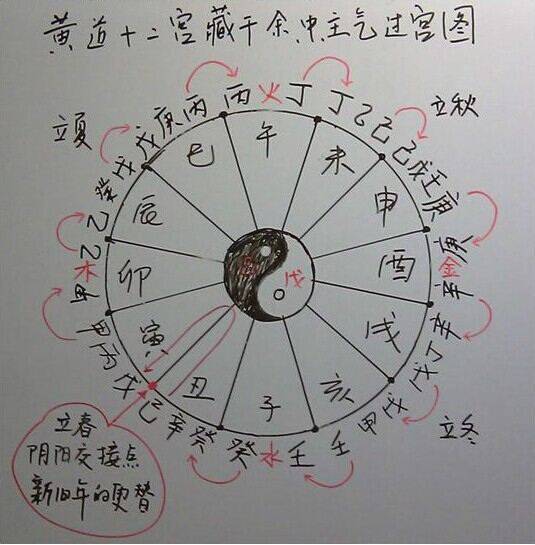 黄道十二宫藏干余中主气过宫图
丙火丁
丁乙己
立秋
己戊壬庚
庚金辛
辛丁戊
立冬
戊甲壬
壬水癸
癸辛己
戊丙甲
甲木乙
乙癸戊
立夏
戊庚丙
午
未
申
酉
戌
亥
子
丑
寅
卯
辰
巳
戊
立春
阴阳交接点
新旧年的更替